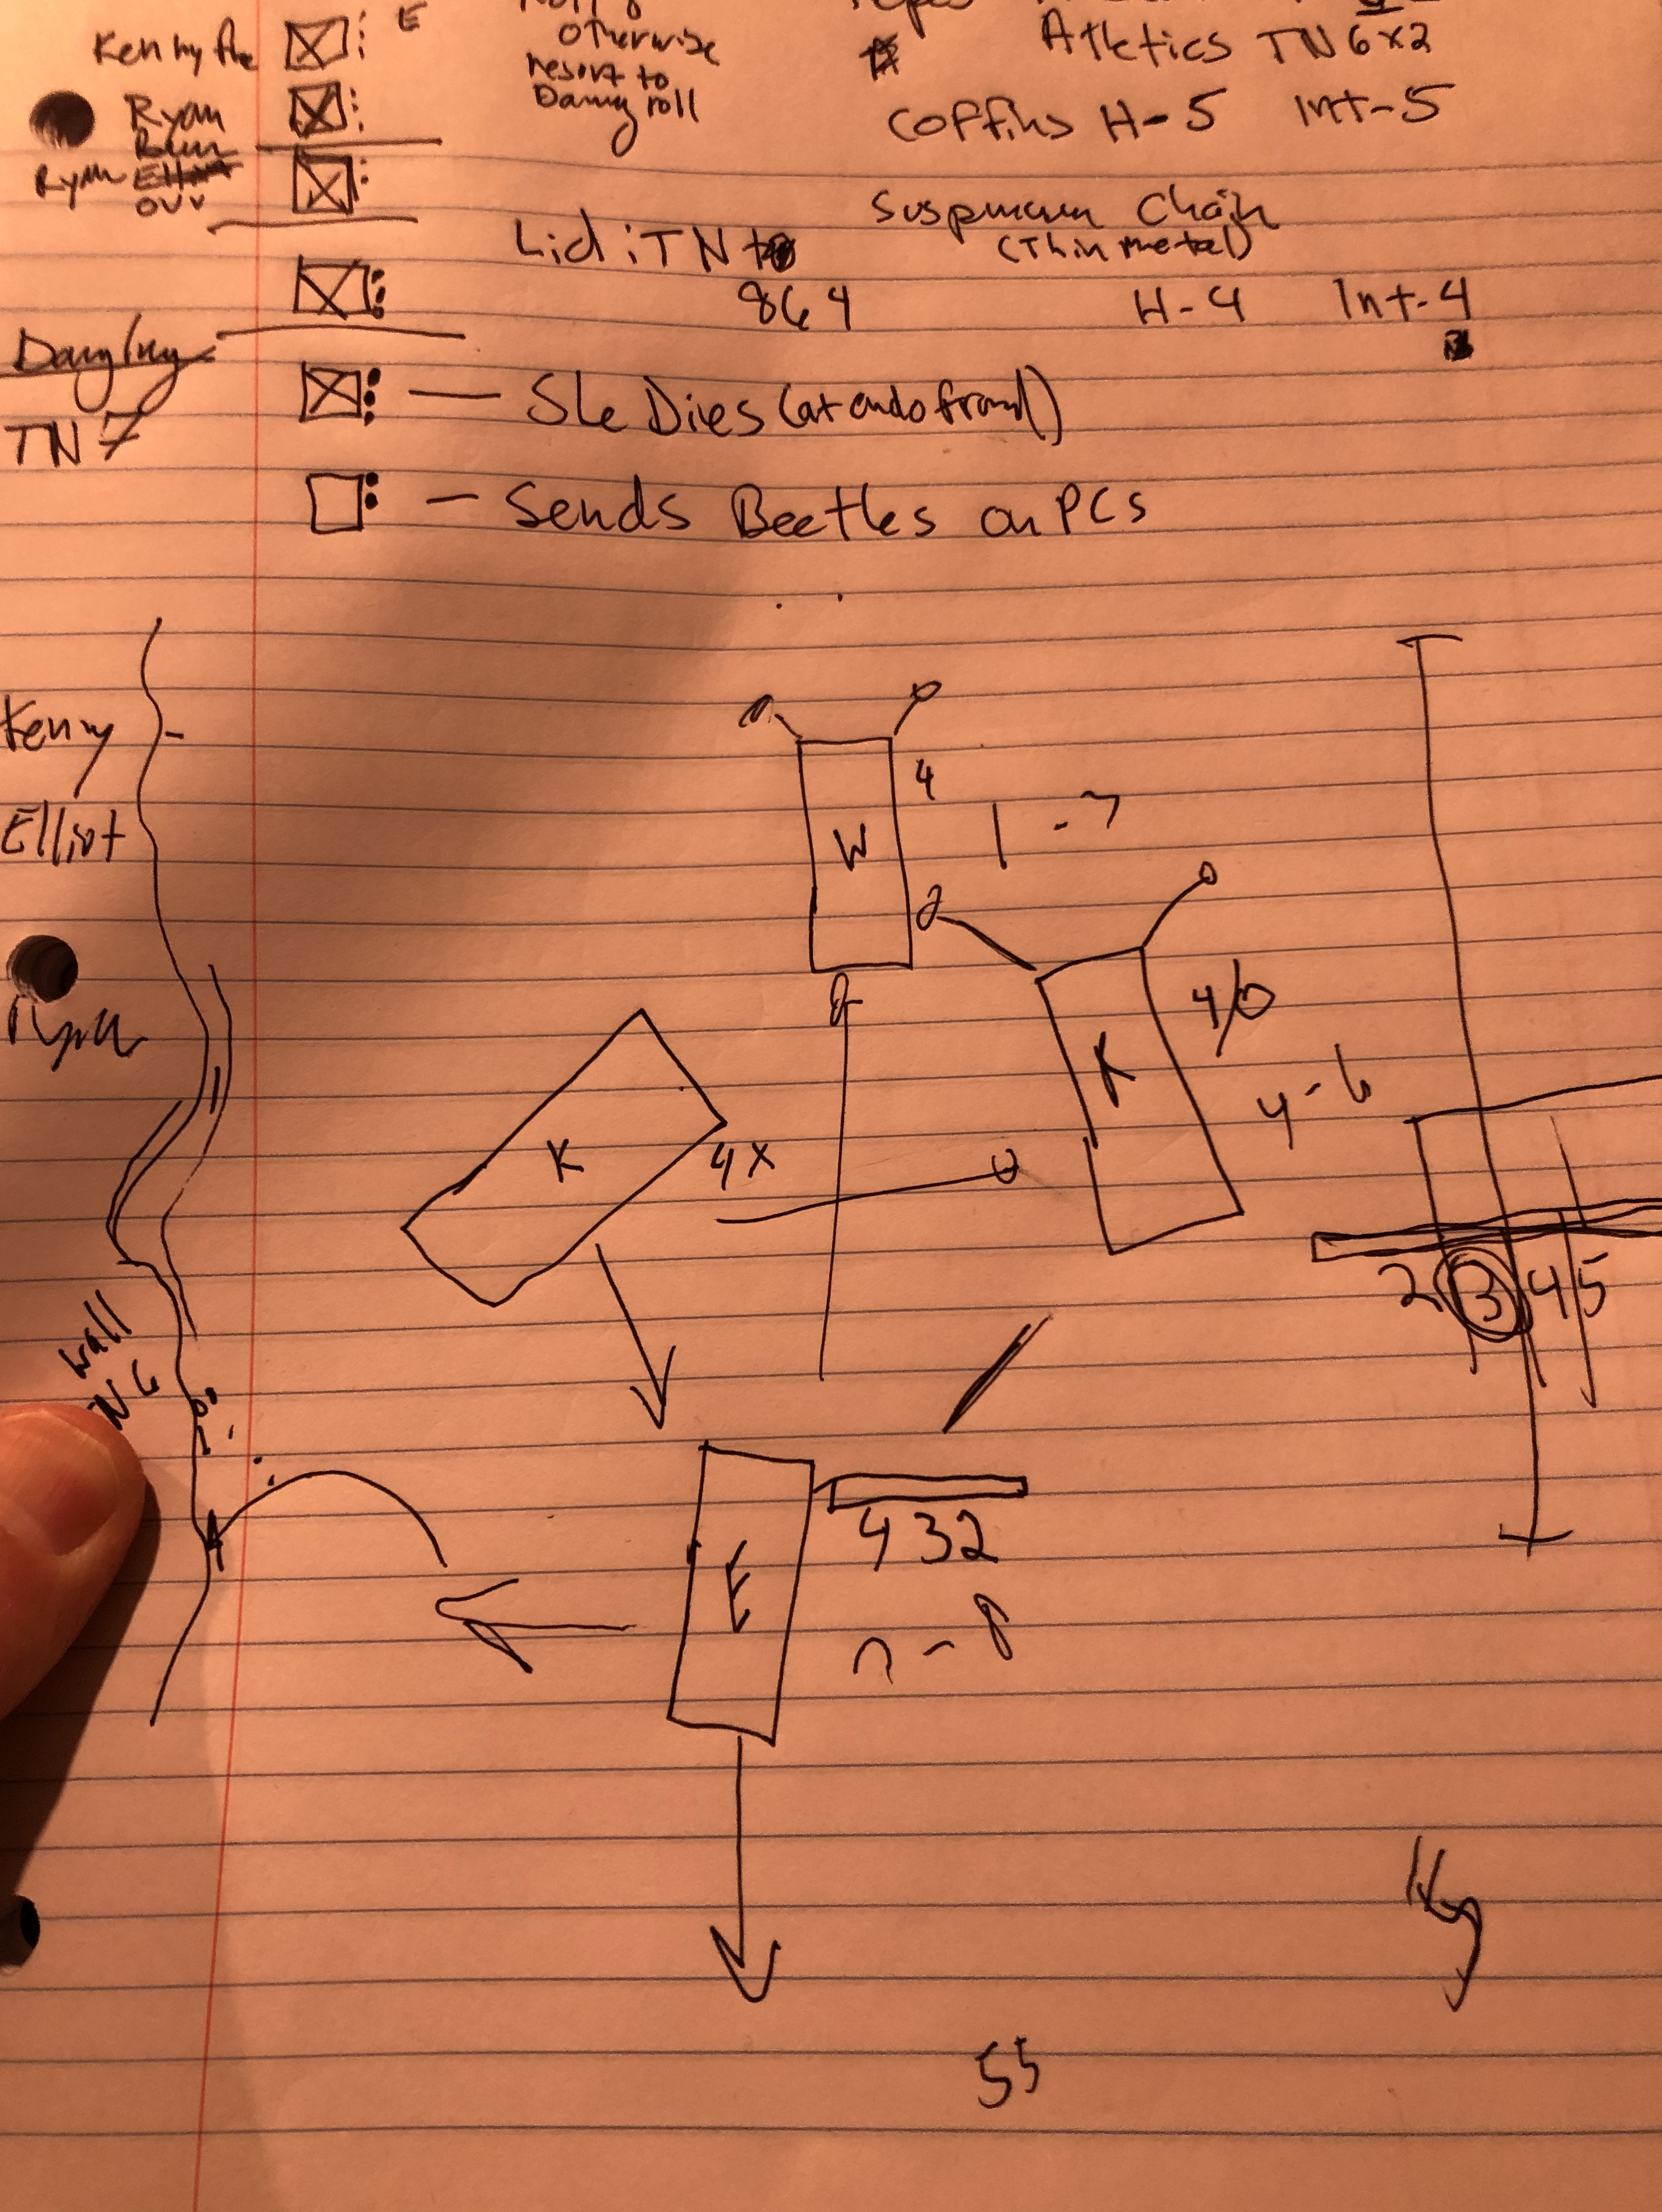 Otherwise
resort to
roll
Atletics TN 6x2
Coffins H-5 Int-5
E
Ryan
Ryan Elliot
Suspension Chain
(Thin metal)
Lid: TN
864
H-4 Int-4
Dangling
TN 7
She Dies (at end of round)
Sends Beetles on PCs
Kenny
Elliot
Ryan
W
4
1-3
K
4/0
4-6
K
4X
2 3 4 5
Wall
N 6
E
4 3 2
55